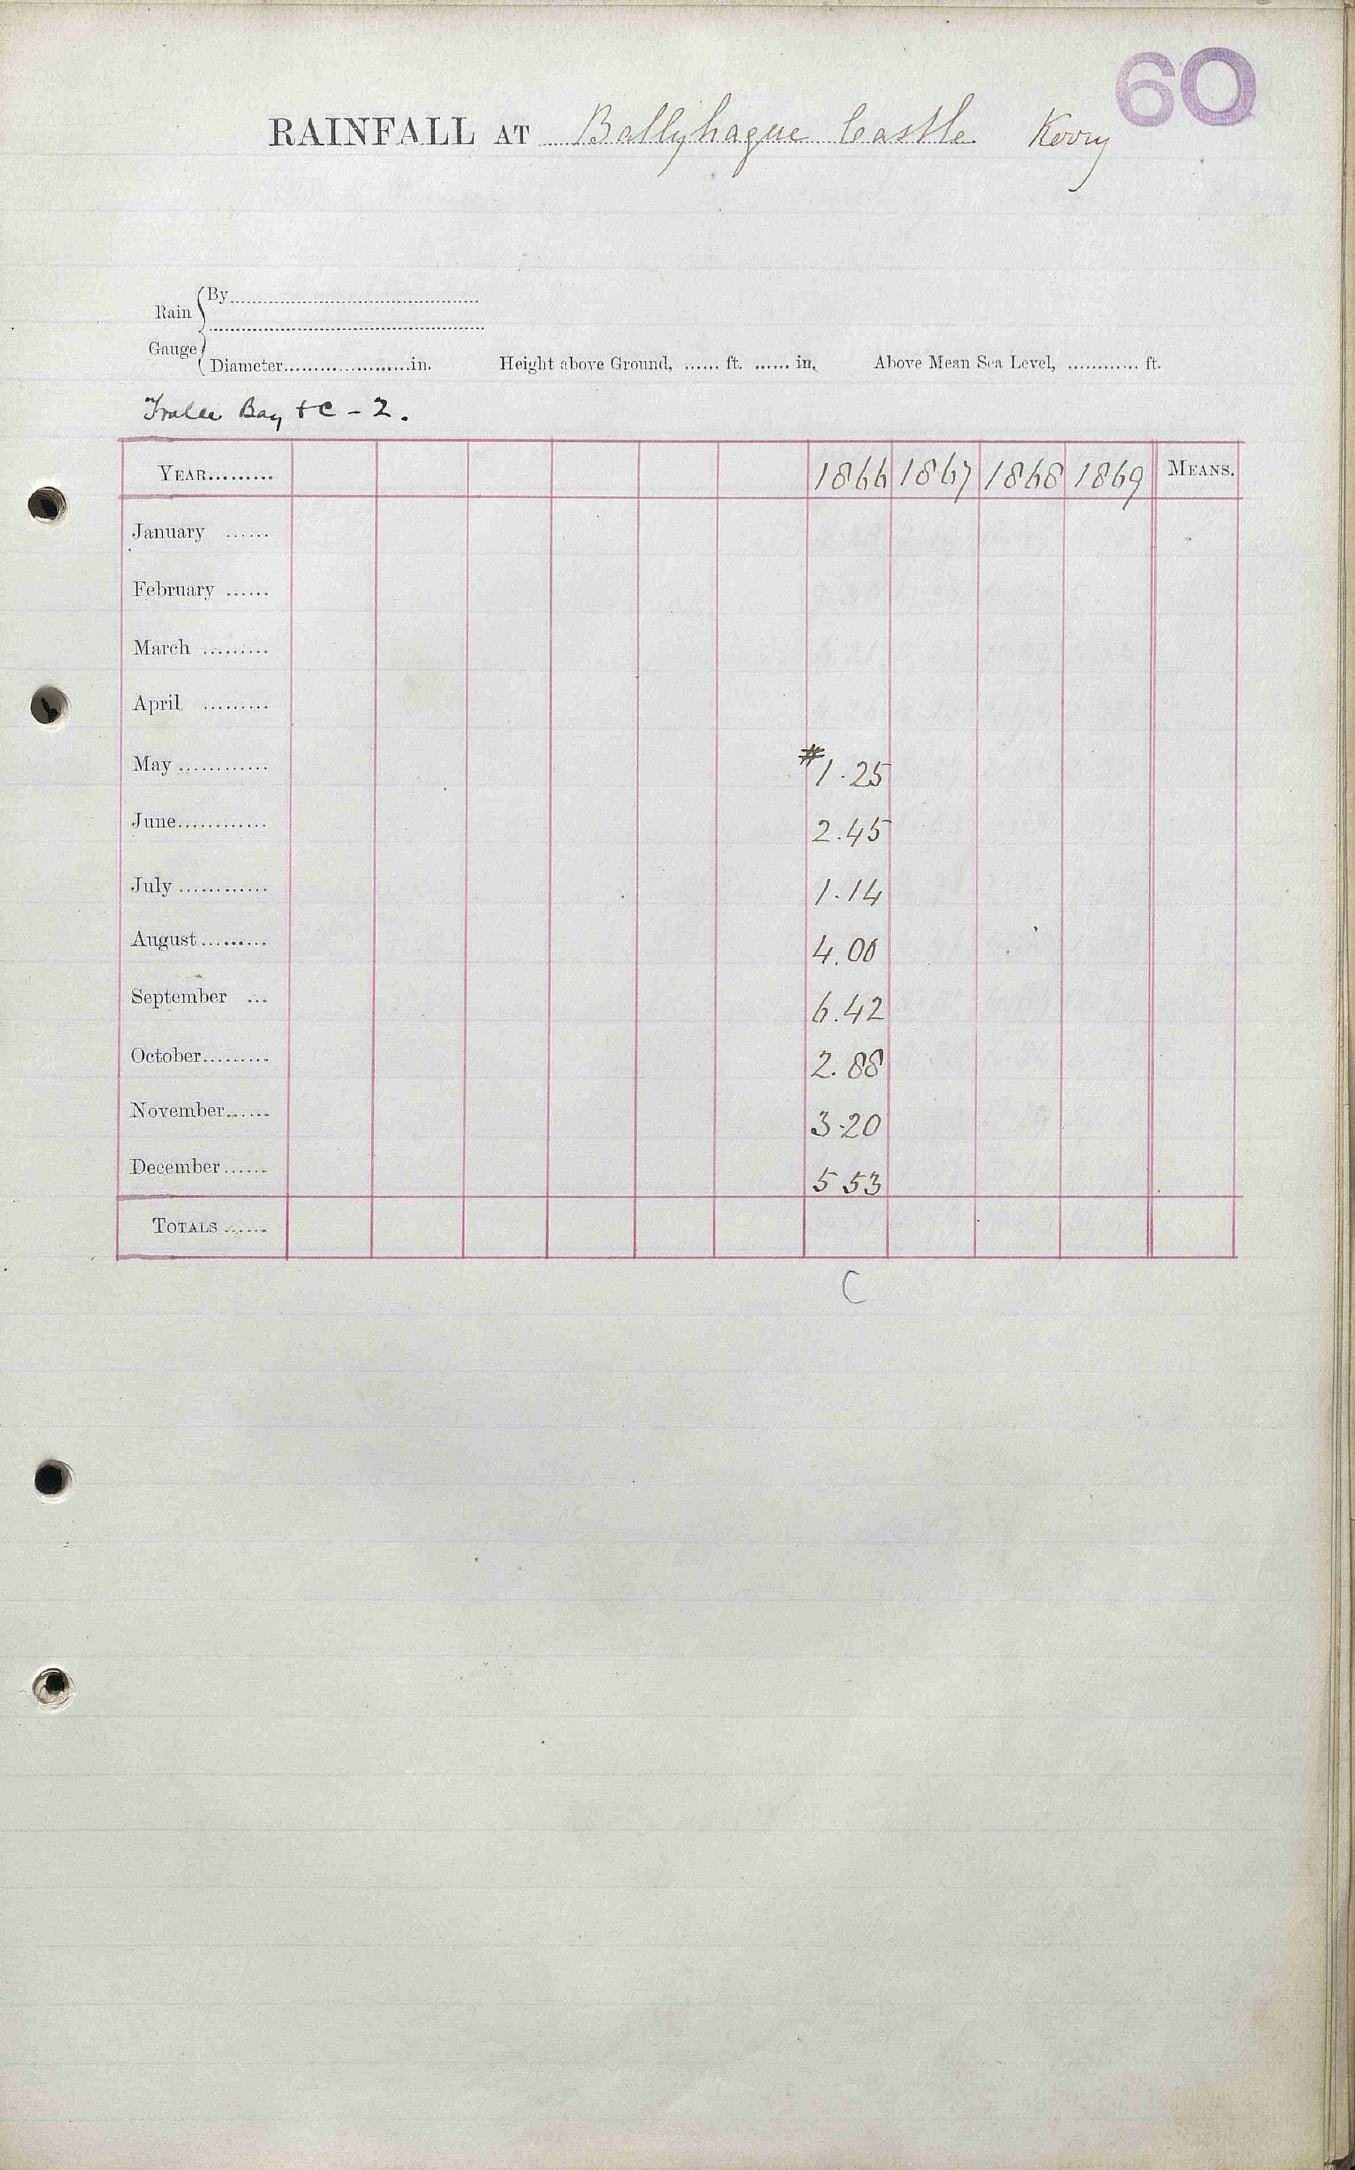 60
RAINFALL AT Ballyhague Castle Kerry
Rain Gauge
By
Diameter.....................in. Height above Ground, ...... ft. ...... in. Above Mean Sea Level, ............ ft.
Tralee Bay &c - 2.
YEAR......... 1866 1867 1868 1869 MEANS.
January ......
February ......
March .........
April .........
May ............ #1.25
June............ 2.45
July ............ 1.14
August......... 4.00
September ... 6.42
October......... 2.88
November...... 3.20
December...... 5 53
TOTALS ......
C